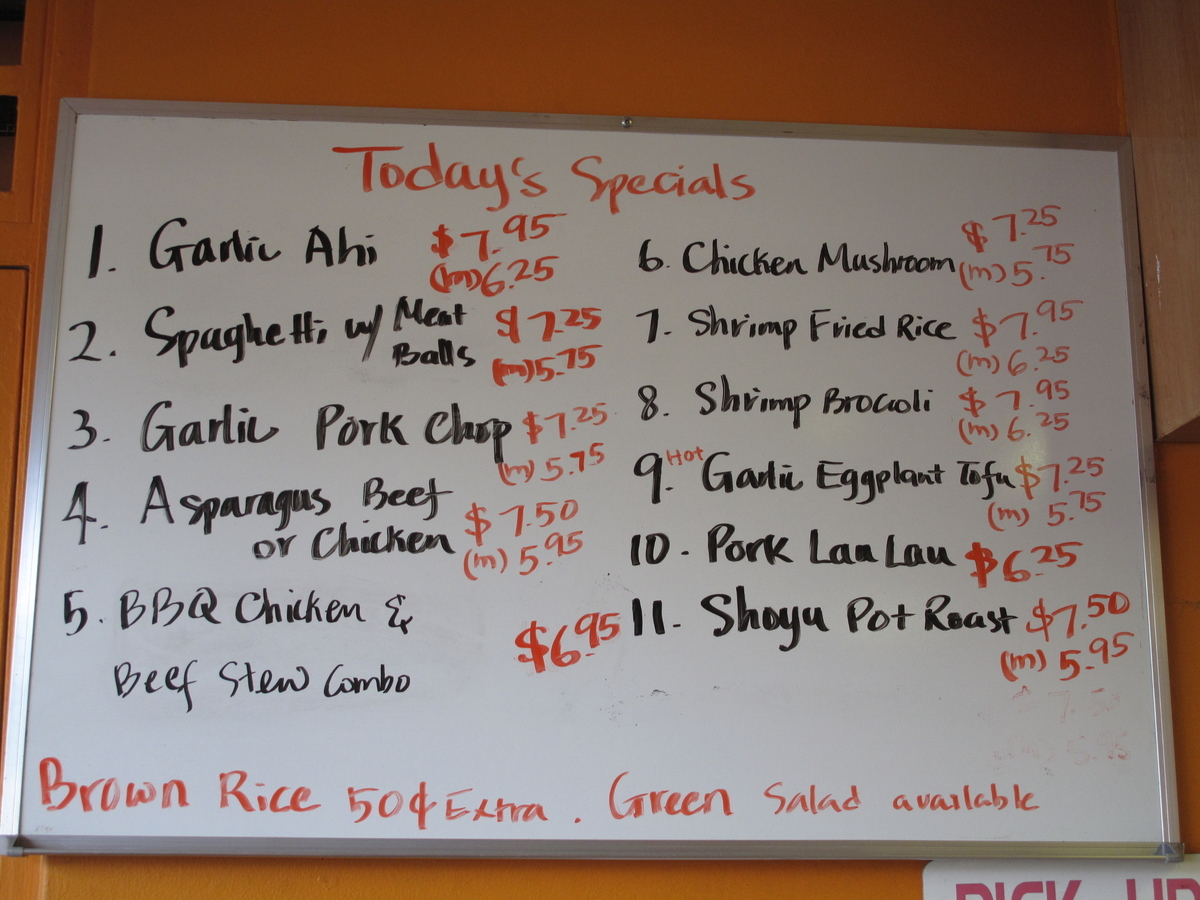 Today's Specials
1. Garlic Ahi $7.95
(m) 6.25
2. Spaghetti w/ Meat Balls $7.25
(m) 5.75
3. Garlic Pork Chop $7.25
(m) 5.75
4. Asparagus Beef
or Chicken $7.50
(m) 5.95
5. BBQ Chicken &
Beef Stew Combo $6.95
6. Chicken Mushroom $7.25
(m) 5.75
7. Shrimp Fried Rice $7.95
(m) 6.25
8. Shrimp Broccoli $7.95
(m) 6.25
9. Hot Garlic Eggplant Tofu $7.25
(m) 5.75
10. Pork Lau Lau $6.25
11. Shoyu Pot Roast $7.50
(m) 5.95
Brown Rice 50¢ Extra. Green Salad available
PICK-UP